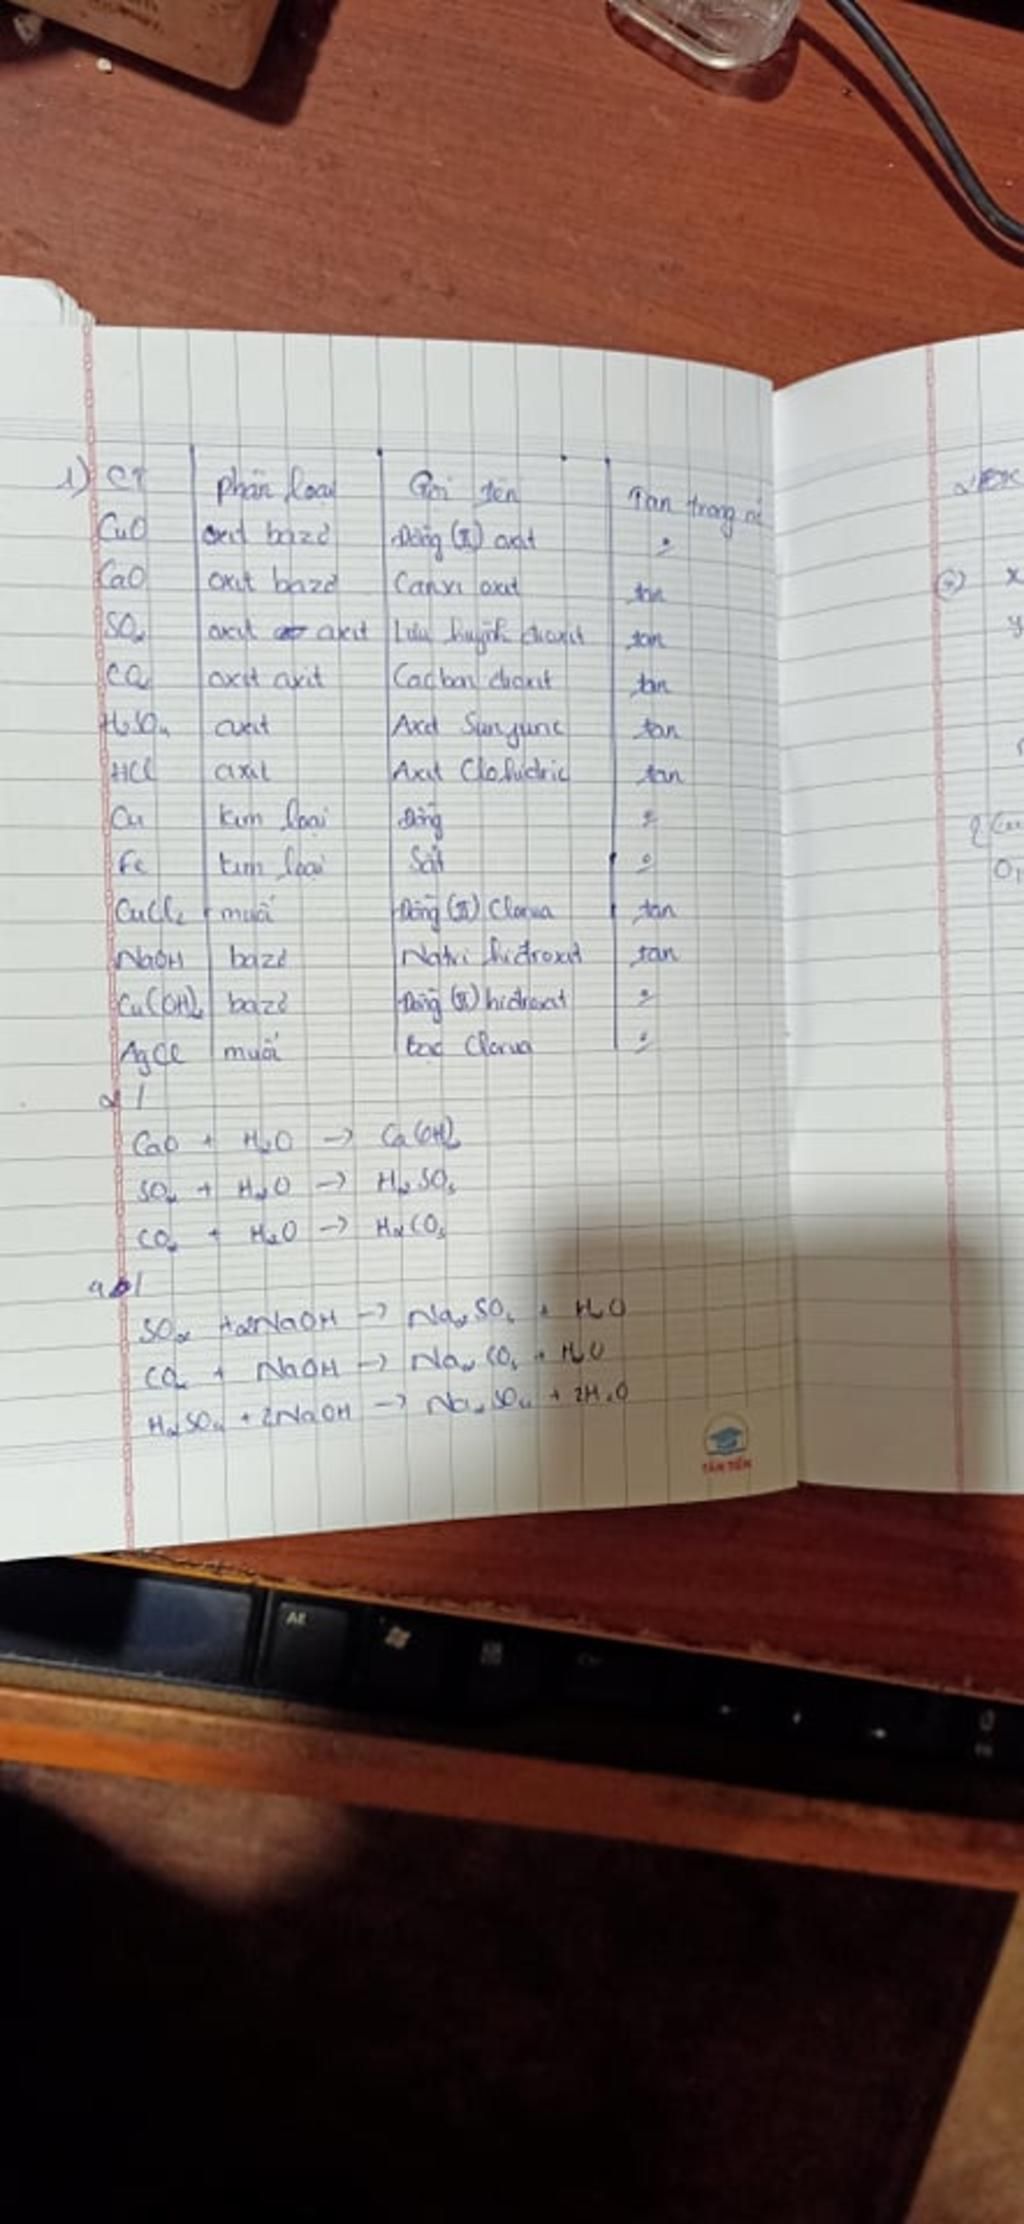 1) CT phân loại Gọi tên Tan trong nc
CuO oxit bazơ Đồng (II) oxit
CaO oxit bazơ Canxi oxit tan
SO2 oxit axit Lưu huỳnh đioxit tan
CO2 oxit axit Cacbon đioxit tan
H2SO4 axit Axit Sunfuric tan
HCl axit Axit Clohiđric tan
Cu kim loại Đồng
Fe kim loại Sắt
CuCl2 muối Đồng (II) Clorua tan
NaOH bazơ Natri hiđroxit tan
Cu(OH)2 bazơ Đồng (II) hiđroxit
AgCl muối bạc Clorua
2/
CaO + H2O -> Ca(OH)2
SO2 + H2O -> H2SO3
CO2 + H2O -> H2CO3
SO2 + 2NaOH -> Na2SO3 + H2O
CO2 + NaOH -> Na2CO3 + H2O
H2SO4 + 2NaOH -> Na2SO4 + 2H2O
TÂN TIẾN